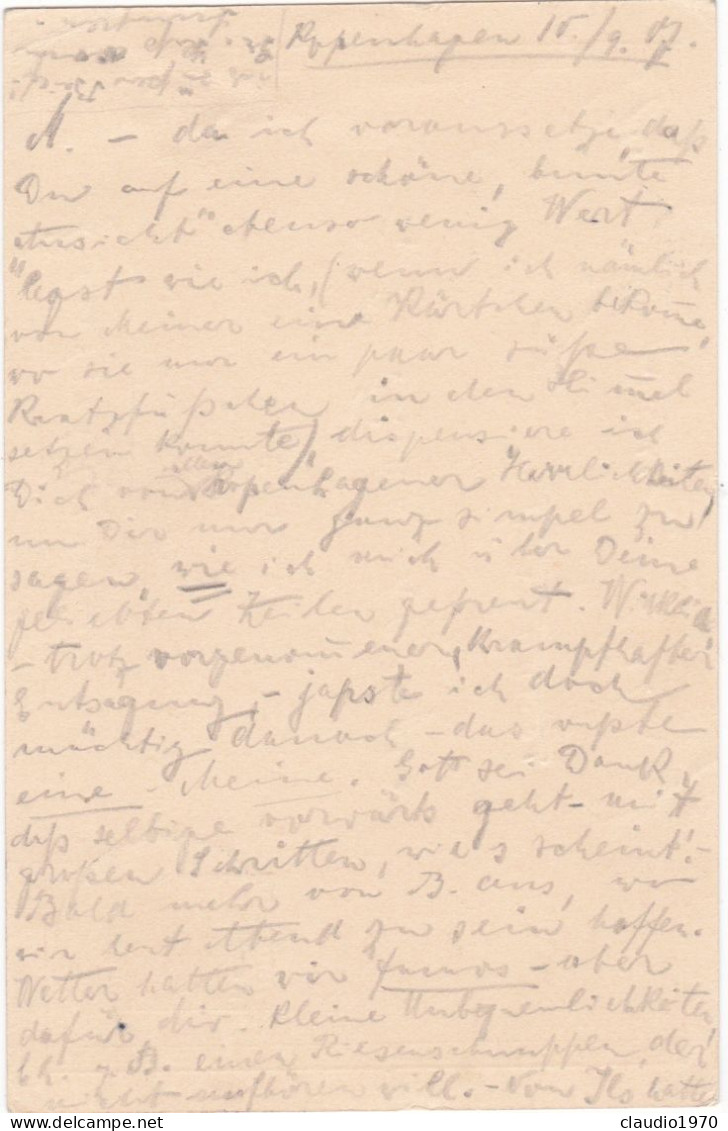 Kopenhagen 15./9. 07.
M. – da ich voraussetze, daß
Du auf eine schöne, bunte
Ansicht" ebenso wenig Wert
"legst wie ich, (wenn ich nämlich
von Meiner eine Kärtchen bekomme,
wo sie nur ein paar süße
Kratzfüßchen in den Himmel
setzen konnte), dispensiere ich
Dich von allen Kopenhagener Herrlichkeiten,
um Dir nur ganz simpel zu
sagen, wie ich mich über Deine
geliebten Zeilen gefreut. Wirklich
– trotz vorgenommener, krampfhafter
Entsagung, – japste ich doch
mächtig danach – das wußte
eine – Meine. Gott sei Dank,
daß selbige vorwärts geht – mit
großen Schritten, wie's scheint! –
Bald mehr von B. aus, wo
wir heut Abend zu sein hoffen.
Wetter hatten wir famos – aber
dafür div. kleine Unbequemlichkeiten,
z. B. einen Riesenschnuppen, der
nicht aufhören will. – Von Ilo hatte
claudio1970